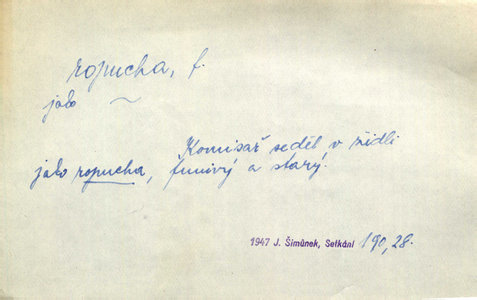 ropucha, f.
jako ~
Komisař seděl v židli
jako ropucha, funivý a starý.
1947 J. Šimůnek, Setkání 190, 28.